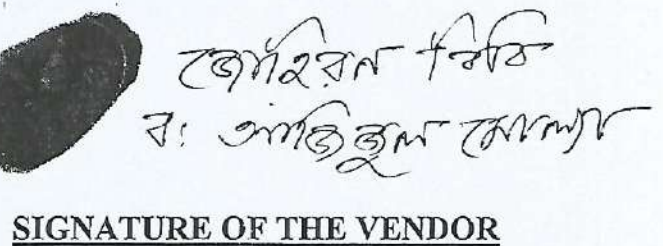 জোহরিন বিবি
ব: আজিজুল মোল্যা
SIGNATURE OF THE VENDOR